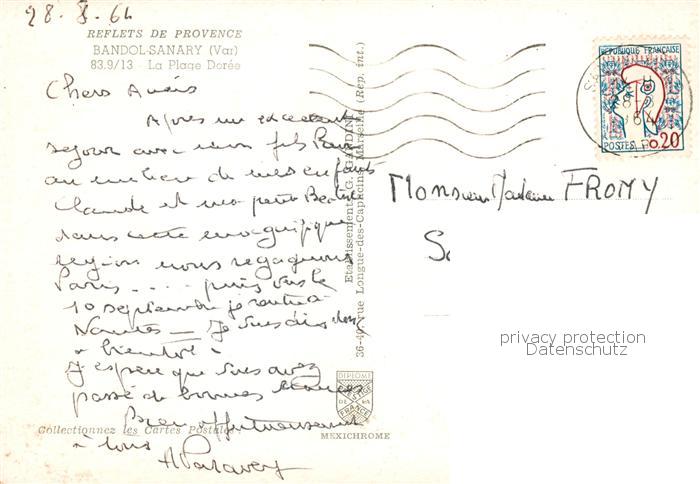 28.8.64
REFLETS DE PROVENCE
BANDOL-SANARY (Var)
83.9/13 - La Plage Dorée
Chers Amis
Après un excellent
séjour avec mon fils
au milieu de mes enfants
Claude et ma petite
dans cette magnifique
région nous regagnons
Paris .... puis vers le
10 septembre je rentre à
Nantes — Je vous dis donc
à bientôt.
J'espère que vous avez
passé de bonnes vacances
Bien affectueusement
à tous
Collectionnez les Cartes Postales
Etablissements G. GANDINI
36-40, rue Longue-des-Capucins, Marseille (Rep. int.)
DIPLOME
PRESTIGE
DE LA
FRANCE
MEXICHROME
REPUBLIQUE FRANÇAISE
POSTES 0,20
Monsieur Madame FROMY
privacy protection
Datenschutz